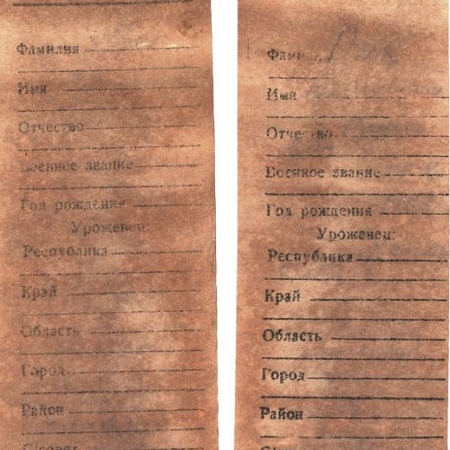 Фамилия
Имя
Отчество
Военное звание
Год рождения
Уроженец:
Республика
Край
Область
Город
Район
Имя
Отчество
Военное звание
Год рождения
Уроженец:
Республика
Край
Область
Город
Район